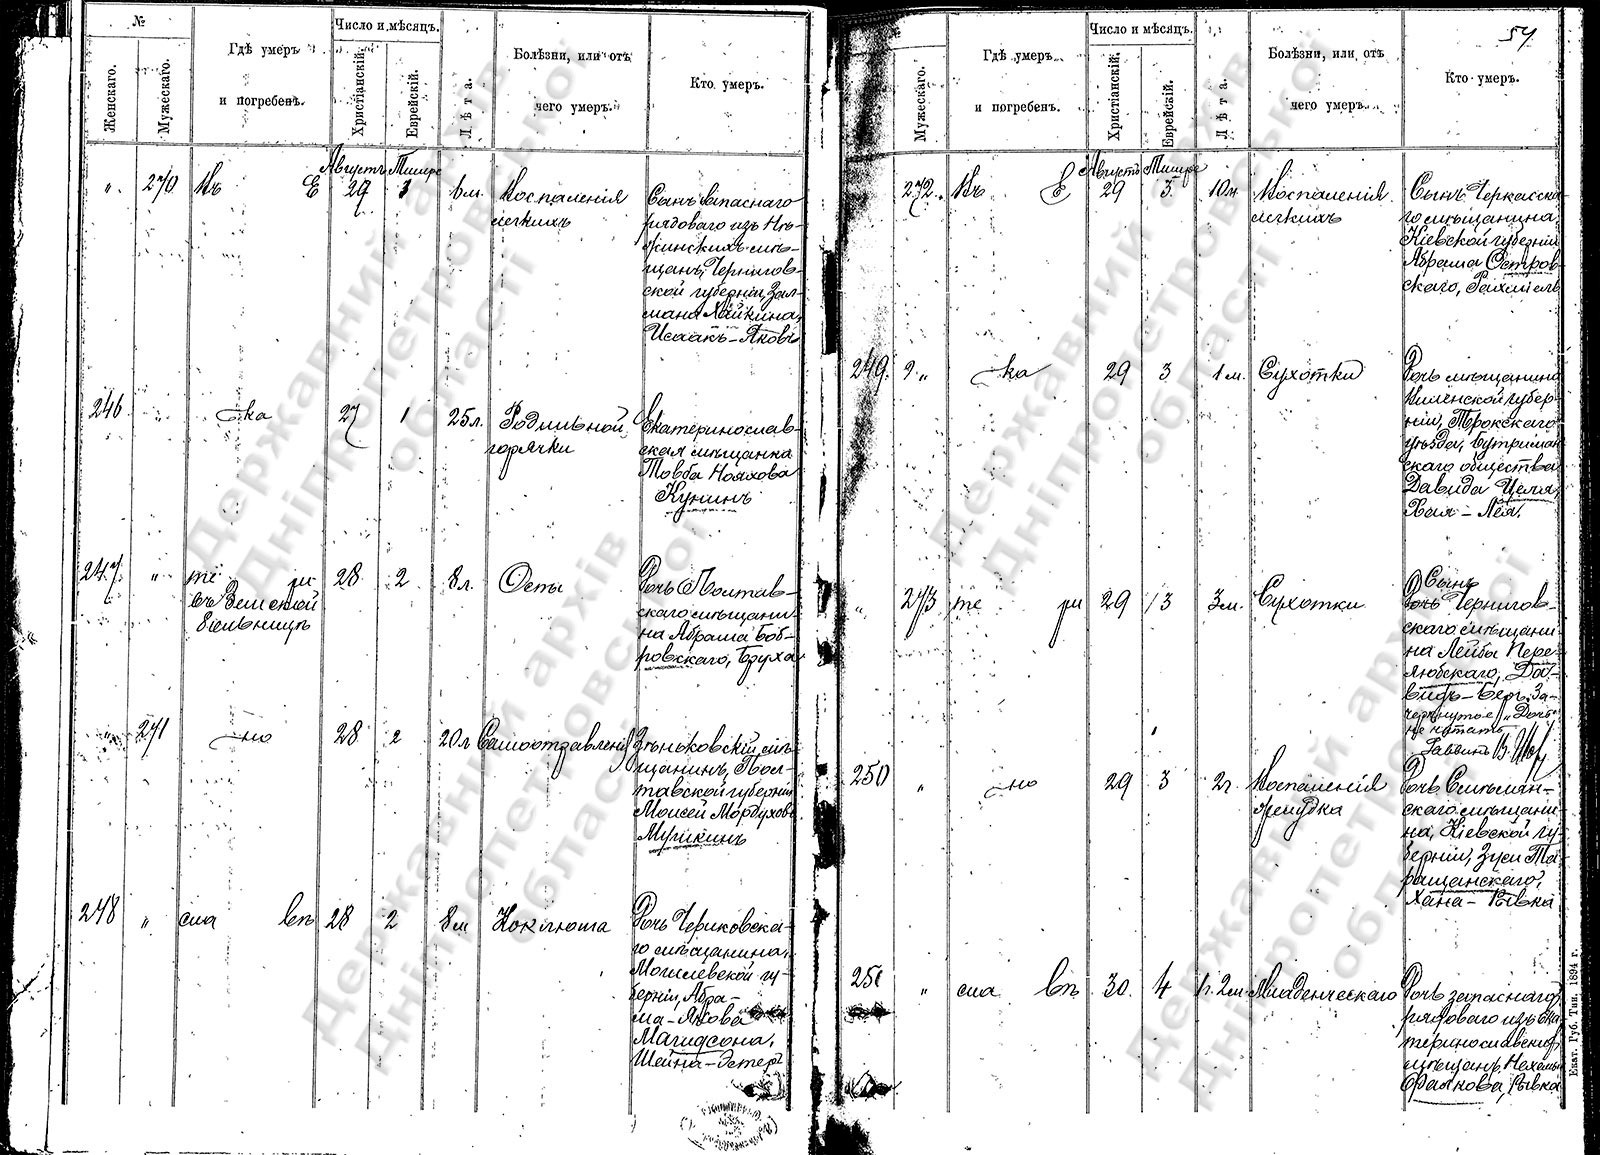 №
Женскаго.
Мужескаго.
Гдѣ умеръ
и погребенъ.
Число и мѣсяцъ.
Христіанскій.
Еврейскій.
Лѣта.
Болѣзни, или отъ
чего умеръ.
Кто умеръ.
Августъ Тишре
„ 270 Въ Е 27 1 6м. Воспаленія
легкихъ
Сынъ запаснаго
рядоваго изъ Нѣ-
жинскихъ мѣ-
щанъ, Чернигов-
ской губерніи, Зал-
мана Хайкина,
Исаакъ-Яковъ
246 ка 27 1 25л. Родильной
горячки
Екатеринослав-
ская мѣщанка
Товба Нояхова
Кунинъ
247. „ те ри 28 2 8л. Оспы
въ Земской
больницѣ
Дочь Полтав-
скаго мѣщани-
на Абрама Боб-
ровскаго, Бруха
„ 271 но 28 2 20л Самоотравленія
Зѣньковскій мѣ-
щанинъ, Пол-
тавской губерніи
Моисей Мордуховъ
Мушкинъ
248 „ сла въ 28 2 8м Коклюша
Дочь Чериковска-
го мѣщанина,
Могилевской гу-
берніи, Абра-
ма-Якова
Магидсона,
Шейна-Эстеръ
54
Мужескаго.
Гдѣ умеръ
и погребенъ.
Число и мѣсяцъ.
Христіанскій.
Еврейскій.
Лѣта.
Болѣзни, или отъ
чего умеръ.
Кто умеръ.
Августъ Тишре
272. Въ Е 29 3. 10м. Воспаленія
легкихъ
Сынъ Черкасска-
го мѣщанина,
Кіевской губерніи
Абрама Остров-
скаго, Рахміель
249. „ ка 29 3 1м. Сухотки
Дочь мѣщанина
Виленской губер-
ніи, Трокскаго
уѣзда, Бутриман-
скаго общества
Давида Целя,
Хая-Лея.
„ 273 те ри 29 3 3м. Сухотки
Сынъ
Дочь Чернигов-
скаго мѣщани-
на Лейбы Пере-
любскаго, Да-
видъ-Беръ. За-
черкнутое „Дочь“
не читать
Раввинъ
250 „ но 29 3 2г. Воспаленія
желудка
Дочь Смѣлян-
скаго мѣщани-
на, Кіевской гу-
берніи, Зуси Та-
ращанскаго,
Хана-Ривка
251 „ сла въ 30. 4 1г. 2м. Младенческаго
Дочь запаснаго
рядоваго изъ Ека-
теринославскихъ
мѣщанъ, Нехемьи
Файнова, Ривка
Екат. Губ. Тип. 1894 г.
Державний архів
Дніпропетровської
області